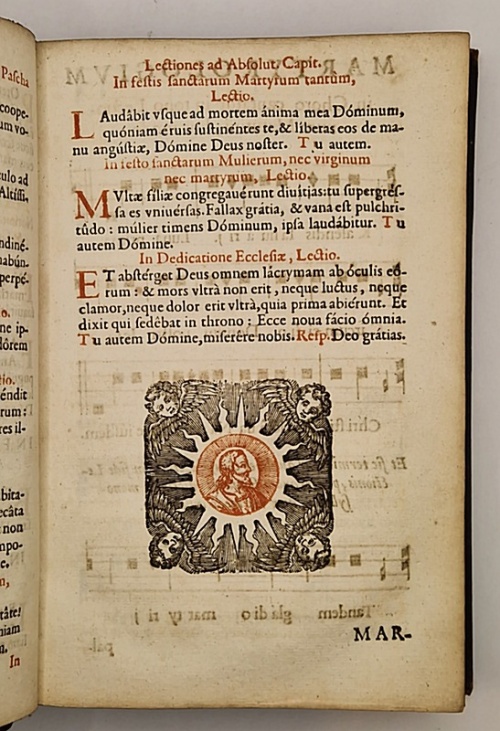 Pascha
coope-
um vo-
culo ad
Altissi,
ndiné-
nabún-
perpé-
o.
ne ip-
dólrem
tio.
éndit
rum:
res il-
bita-
ecâta
non
mpo-
e.
m,
tâte!
niam
In
Lectiones ad Absolut. Capit.
In festis sanctarum Martyrum tantùm,
Lectio.
LAudâbit vsque ad mortem ánima mea Dóminum,
quóniam éruis sustinéntes te, & líberas eos de ma-
nu angústiæ, Dómine Deus noster. Tu autem.
In festo sanctarum Mulierum, nec virginum
nec martyrum, Lectio.
MVltæ fíliæ congregavérunt divítias: tu supergrés-
sa es vniuérsas. Fallax grátia, & vana est pulchri-
túdo: múlier timens Dóminum, ipsa laudábitur. Tu
autem Dómine.
In Dedicatione Ecclesiæ, Lectio.
ET abstérget Deus omnem lácrymam ab óculis eó-
rum: & mors vltrà non erit, neque luctus, neque
clamor, neque dolor erit vltrà, quia prima abiérunt. Et
dixit qui sedébat in throno: Ecce noua fácio ómnia.
Tu autem Dómine, miserére nobis. Resp. Deo grátias.
MAR-